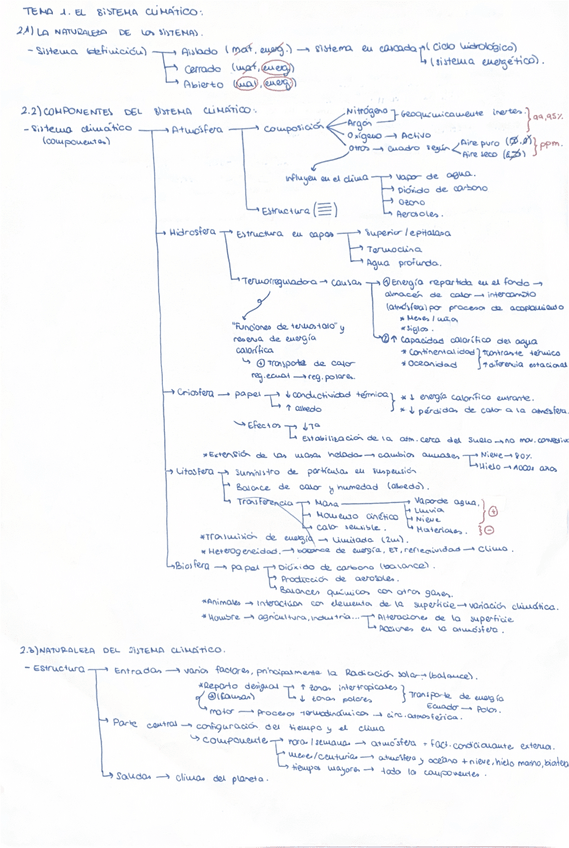 TEMA 1. EL SISTEMA CLIMÁTICO:
2.1) LA NATURALEZA DE LOS SISTEMAS.
- Sistema (definición) → Aislado (mat, energ.) → sistema en cascada (ciclo hidrológico)
→ Cerrado (mat, energ) (sistema energético).
→ Abierto (mat, energ)
2.2) COMPONENTES DEL SISTEMA CLIMÁTICO:
- Sistema climático → Atmósfera → Composición → Nitrógeno
(componentes) → Argón Geoquímicamente inertes. 99,95%
→ Oxígeno → Activo
→ Otros → cuadro según Aire puro
Aire seco ppm.
influyen en el clima → Vapor de agua.
→ Dióxido de carbono
→ Ozono
→ Aerosoles.
→ Estructura
→ Hidrosfera → Estructura en capas → Superior / epitalasa
→ Termoclina
→ Agua profunda.
→ Termorreguladora → causas → ① Energía repartida en el fondo →
almacén de calor → intercambio
(atmósfera) por proceso de acoplamiento
* Meses /
* Siglos.
"Funciones de termostato" y
reserva de energía
calorífica
→ ② ↑ Capacidad calorífica del agua
* Continentalidad ↑ contraste térmico
* Oceanidad ↑ inercia estacional
↳ ⊕ Transporte de calor
reg. ecuat → reg. polares.
→ Criosfera → papel → ↓ conductividad térmica * ↓ energía calorífico entrante.
↑ albedo * ↓ pérdidas de calor a la atmósfera.
↳ Efectos → ↓ Tª
→ Estabilización de la atm. cerca del suelo → no mov. convectivo
* Extensión de las masas heladas → cambios anuales → Nieve → 80%
→ Hielo → años
→ Litosfera → Suministro de partículas en suspensión
→ Balance de calor y humedad (albedo).
→ Transferencia → Masa → Vapor de agua.
→ Momento cinético → Lluvia ⊕
→ Calor sensible. → Nieve
→ Materiales. ⊖
* Transmisión de energía → Limitada (2m).
* Heterogeneidad. → balance de energía, ET, rugosidad → Clima.
→ Biosfera → papel → Dióxido de carbono (balance).
→ Producción de aerosoles.
→ Balances químicos con otros gases.
* Animales → Interacción con elementos de la superficie → variación climática.
* Hombre → agricultura, industria... → Alteraciones de la superficie
→ Acciones en la atmósfera.
2.3) NATURALEZA DEL SISTEMA CLIMÁTICO.
- Estructura → Entradas → varios factores, principalmente la Radiación solar → (balance).
* Reparto desigual → ↑ zonas intertropicales Transporte de energía
→ ↓ zonas polares Ecuador → Polos.
↳ motor → procesos termodinámicos → circ. atmosférica.
→ Parte central → configuración del tiempo y el clima
↳ componente → horas / semanas → atmósfera + fact. condicionante externa.
→ meses / centurias → atmósfera y océano + nieve, hielo marino,
→ tiempos mayores → todo la componentes.
→ Salidas → climas del planeta.